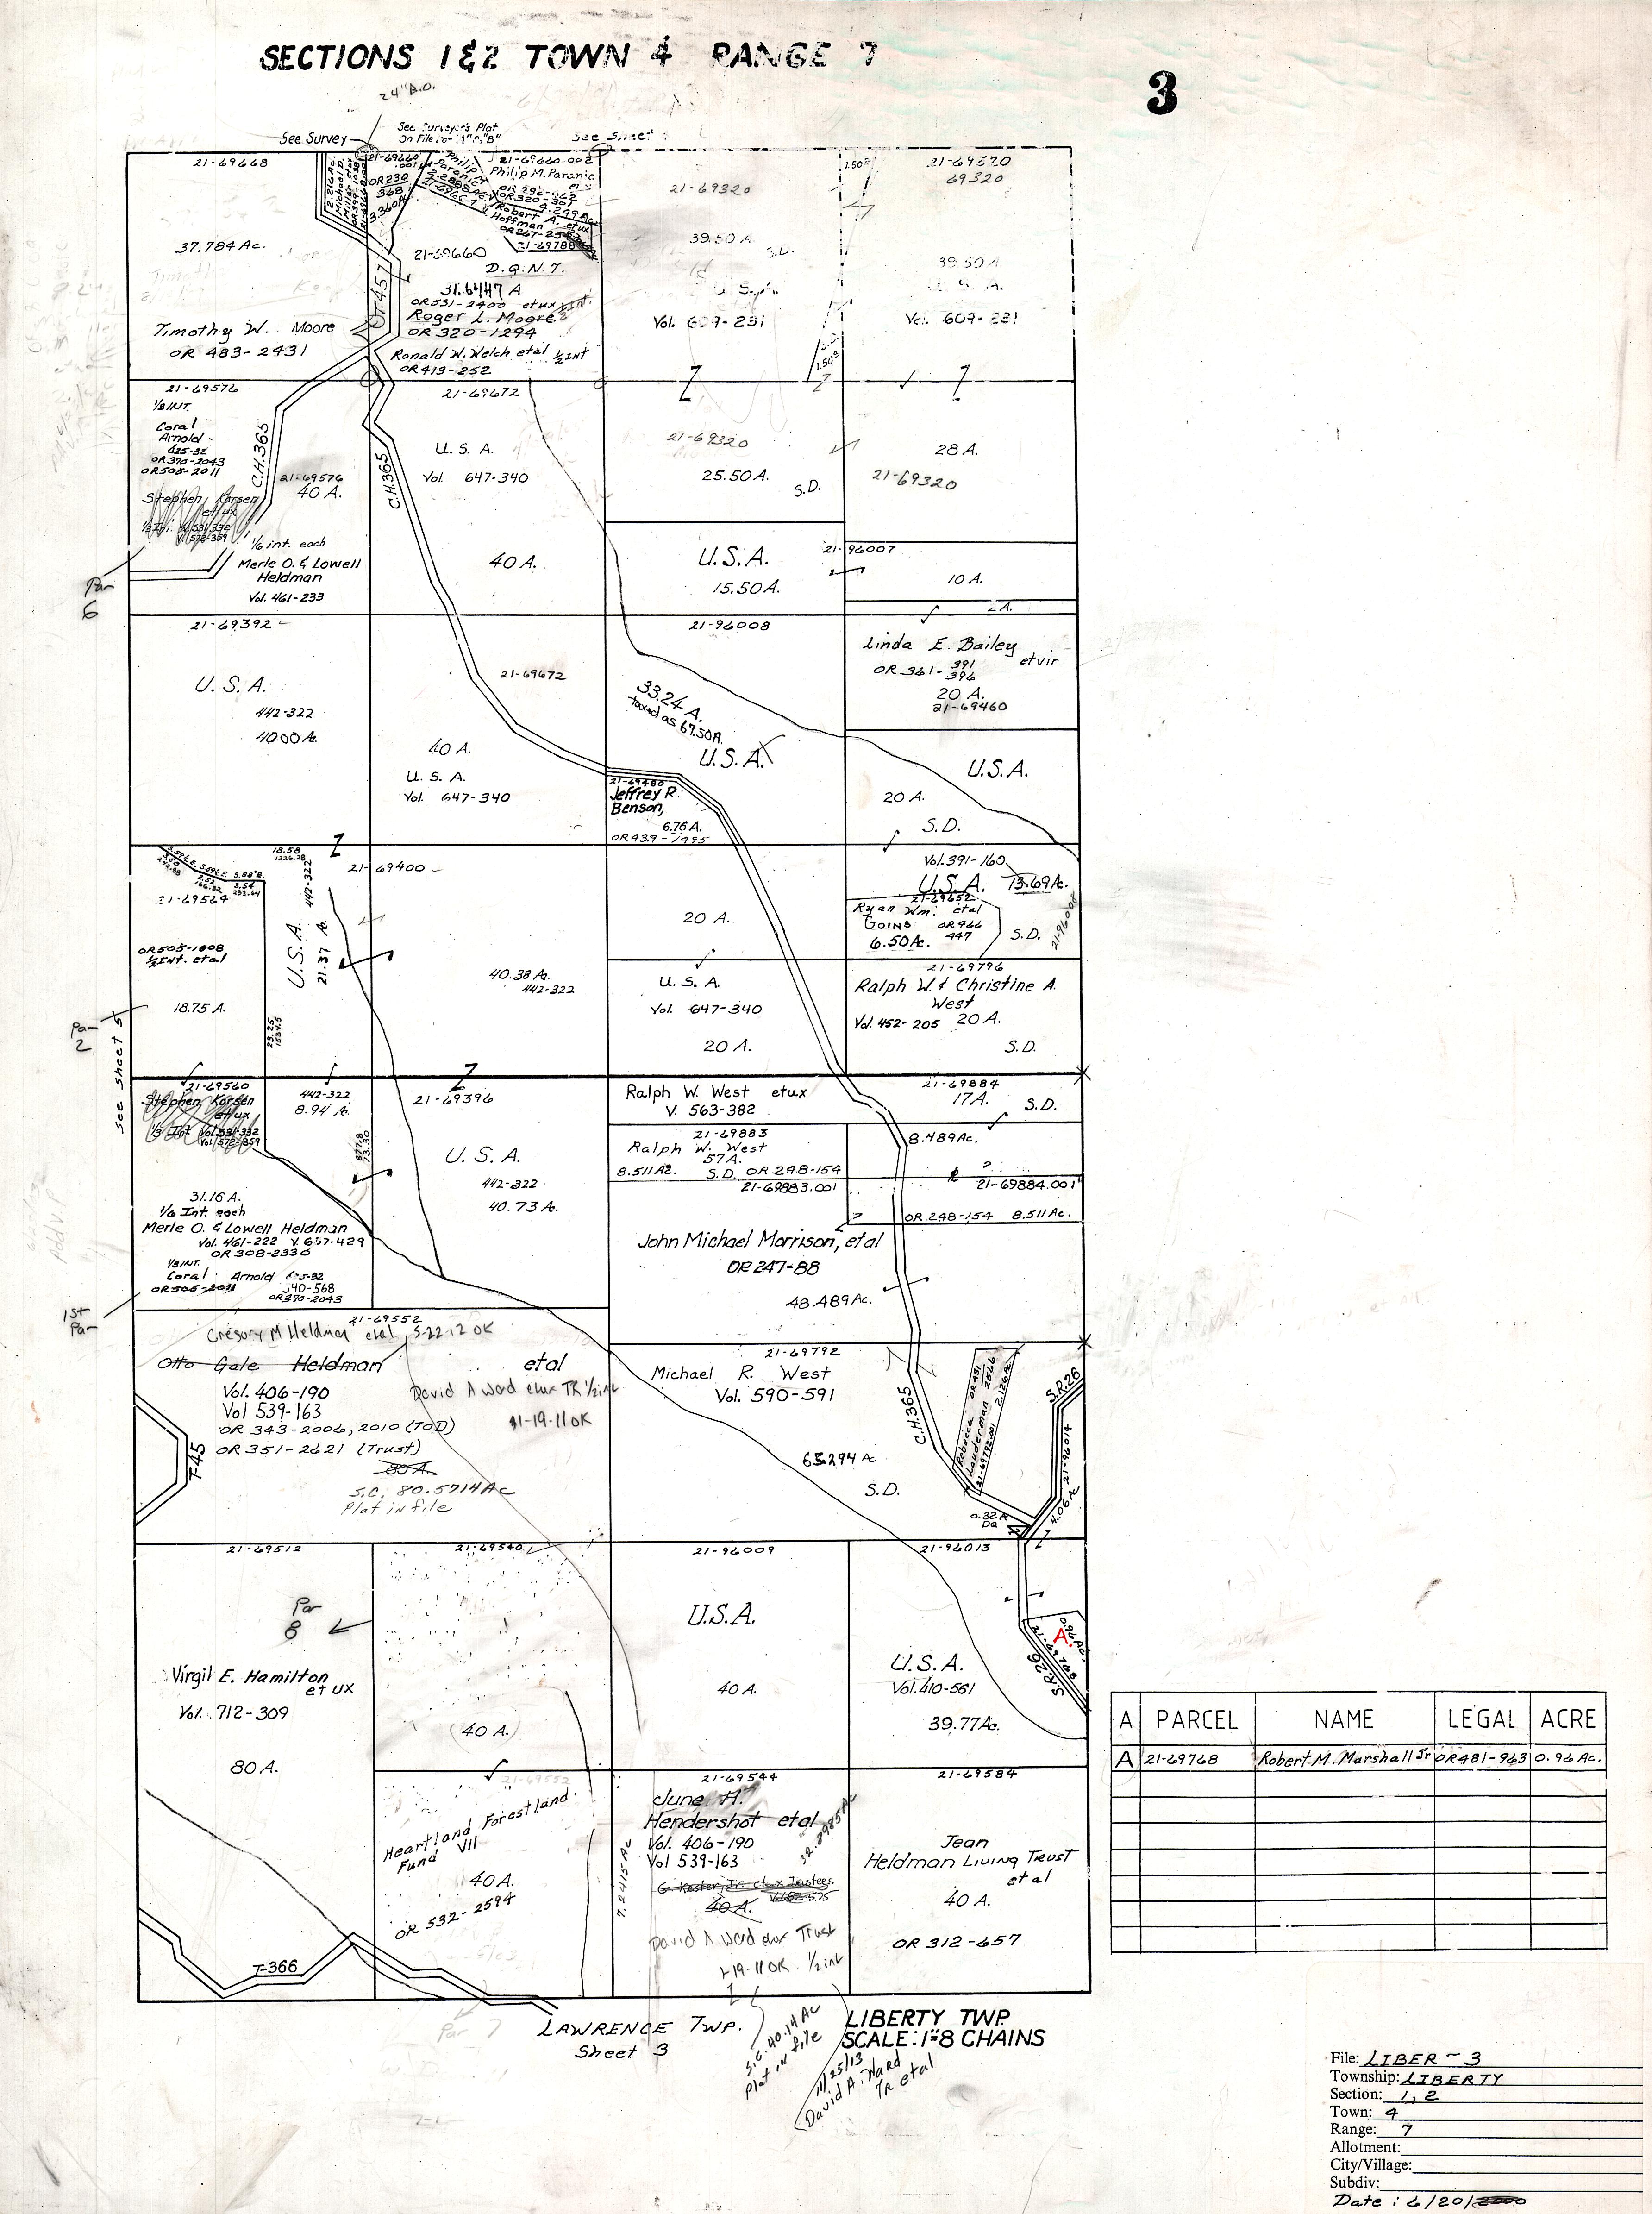 SECTIONS 1 & 2 TOWN 4 RANGE 7
3
24" B.O.
See Survey
See Surveyor's Plat
On File
See Sheet
21-69668
37.784 Ac.
Timothy W. Moore
OR 483-2431
OR 230
368
3.360 Ac
21-69660.002
Philip M. Paranic
OR 320-301
4.299 Ac
Robert A. etux
Hoffman
21-69788
21-69660
D.Q.N.T.
31.6447 A
OR 531-2400 etux ½ Int.
Roger L. Moore
OR 320-1294
Ronald W. Welch etal ½ INT
OR 413-252
T-457
21-69320
39.50 A.
S.D.
Vol. 609-231
1.50ᵃ
1.50ᵃ
21-69320
69320
39.50 A.
Vol. 609-231
21-69576
⅓ INT.
Coral
Arnold
625-32
OR 370-2043
OR 505-2011
Stephen Korsen
etux
C.H. 365
21-69576
40 A.
⅙ int. each
Merle O. & Lowell
Heldman
Vol. 461-233
Par
6
21-69672
U.S.A.
Vol. 647-340
C.H. 365
40 A.
21-69320
25.50 A.
S.D.
28 A.
21-69320
U.S.A.
15.50 A.
21-96007
10 A.
2 A.
21-69392
U.S.A.
442-322
40.00 Ac.
21-69672
40 A.
U.S.A.
Vol. 647-340
21-96008
33.24 A.
taxed as 67.50 A.
U.S.A.
21-69480
Jeffrey R.
Benson,
6.76 A.
OR 439-1495
Linda E. Bailey
etvir
OR 361-391
396
20 A.
21-69460
U.S.A.
20 A.
S.D.
18.58
1226.28
21-69564
OR 505-1008
½ INT. etal
18.75 A.
Par
2
See Sheet 5
U.S.A. 442-322
21.37 Ac.
23.25
1534.5
21-69400
40.38 Ac.
442-322
20 A.
U.S.A.
Vol. 647-340
20 A.
Vol. 391-160
U.S.A. 13.69 Ac.
21-69652
Ryan Wm. etal
GOINS OR 466
447
6.50 Ac.
S.D.
21-96008
21-69796
Ralph W. & Christine A.
West
Vol. 452-205 20 A.
S.D.
21-69560
Stephen Korsen
etux
⅓ Int Vol. 531-332
Vol 572-359
442-322
8.94 Ac.
877.8
13.30
31.16 A.
⅙ Int. each
Merle O. & Lowell Heldman
Vol. 461-222 V. 657-429
OR 308-2336
⅓ INT.
Coral Arnold 625-32
OR 505-2011 540-568
OR 370-2043
1st
Par
21-69396
U.S.A.
442-322
40.73 Ac.
Ralph W. West etux
V. 563-382
21-69884
17 A.
S.D.
21-69883
Ralph W. West
57 A.
8.511 Ac. S.D. OR 248-154
21-69883.001
8.489 Ac.
21-69884.001
OR 248-154 8.511 Ac.
John Michael Morrison, etal
OR 247-88
48.489 Ac.
21-69552
Gregory M Heldman etal 5-22-12 OK
Otto Gale Heldman etal
Vol. 406-190
Vol 539-163
David A Ward etux TR ½ int
1-19-11 OK
OR 343-2006, 2010 (TOD)
OR 351-2621 (Trust)
80 A.
S.C. 80.5714 Ac
Plat in file
T-45
21-69792
Michael R. West
Vol. 590-591
65.294 Ac
S.D.
C.H. 365
Rebecca OR 491
Lauderman 2566
21-69792.001 2.126 Ac.
S.R. 26
21-96014
4.06 Ac
0.32 A
21-69512
Par
8
Virgil E. Hamilton
et ux
Vol. 712-309
80 A.
T-366
21-69540
(40 A.)
21-69552
Heartland Forestland
Fund VII
40 A.
OR 532-2594
21-96009
U.S.A.
40 A.
21-96013
U.S.A.
Vol. 410-561
39.77 Ac.
0.96 Ac.
A.
21-69768
S.R. 26
21-69544
June H.
Hendershot etal
Vol. 406-190
Vol 539-163
G. Kester, Jr. etux Trustees
V. 682-575
40 A.
7.2415 Ac
32.8985 Ac
David A Ward etux Trust
1-19-11 OK ½ int
21-69584
Jean
Heldman Living Trust
et al
40 A.
OR 312-657
A PARCEL NAME LEGAL ACRE
A 21-69768 Robert M. Marshall Jr OR 481-963 0.96 Ac.
Par 7
LAWRENCE TWP.
Sheet 3
S.C. 40.14 Ac
Plat in file
11/25/13
David A. Ward
Tr etal
LIBERTY TWP.
SCALE: 1"=8 CHAINS
File: LIBER-3
Township: LIBERTY
Section: 1, 2
Town: 4
Range: 7
Allotment:
City/Village:
Subdiv:
Date: 6/20/2000